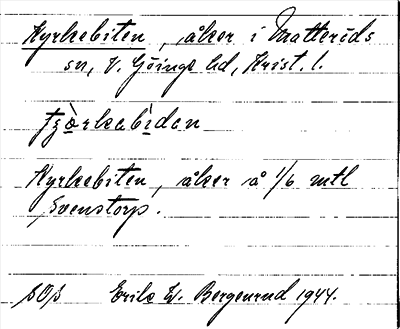 Kyrkebiten, åker i Matteröds
sn, V. Göinge hd, Krist. l.
tjòrkabìdan
Kyrkebiten, åker å 1/6 mtl
Svenstorp.
SOs Erik W. Bergenrud 1944.